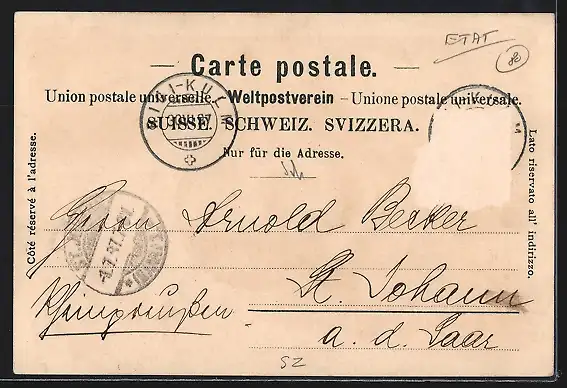 ETAT
80
— Carte postale. —
Union postale universelle. — Weltpostverein – Unione postale universale.
SUISSE. SCHWEIZ. SVIZZERA.
Nur für die Adresse.
Côté réservé à l'adresse.
Lato riservato all' indirizzo.
RIGI-KULM
Herrn Arnold Becker
St. Johann
Rheinpreußen
a. d. Saar
SZ